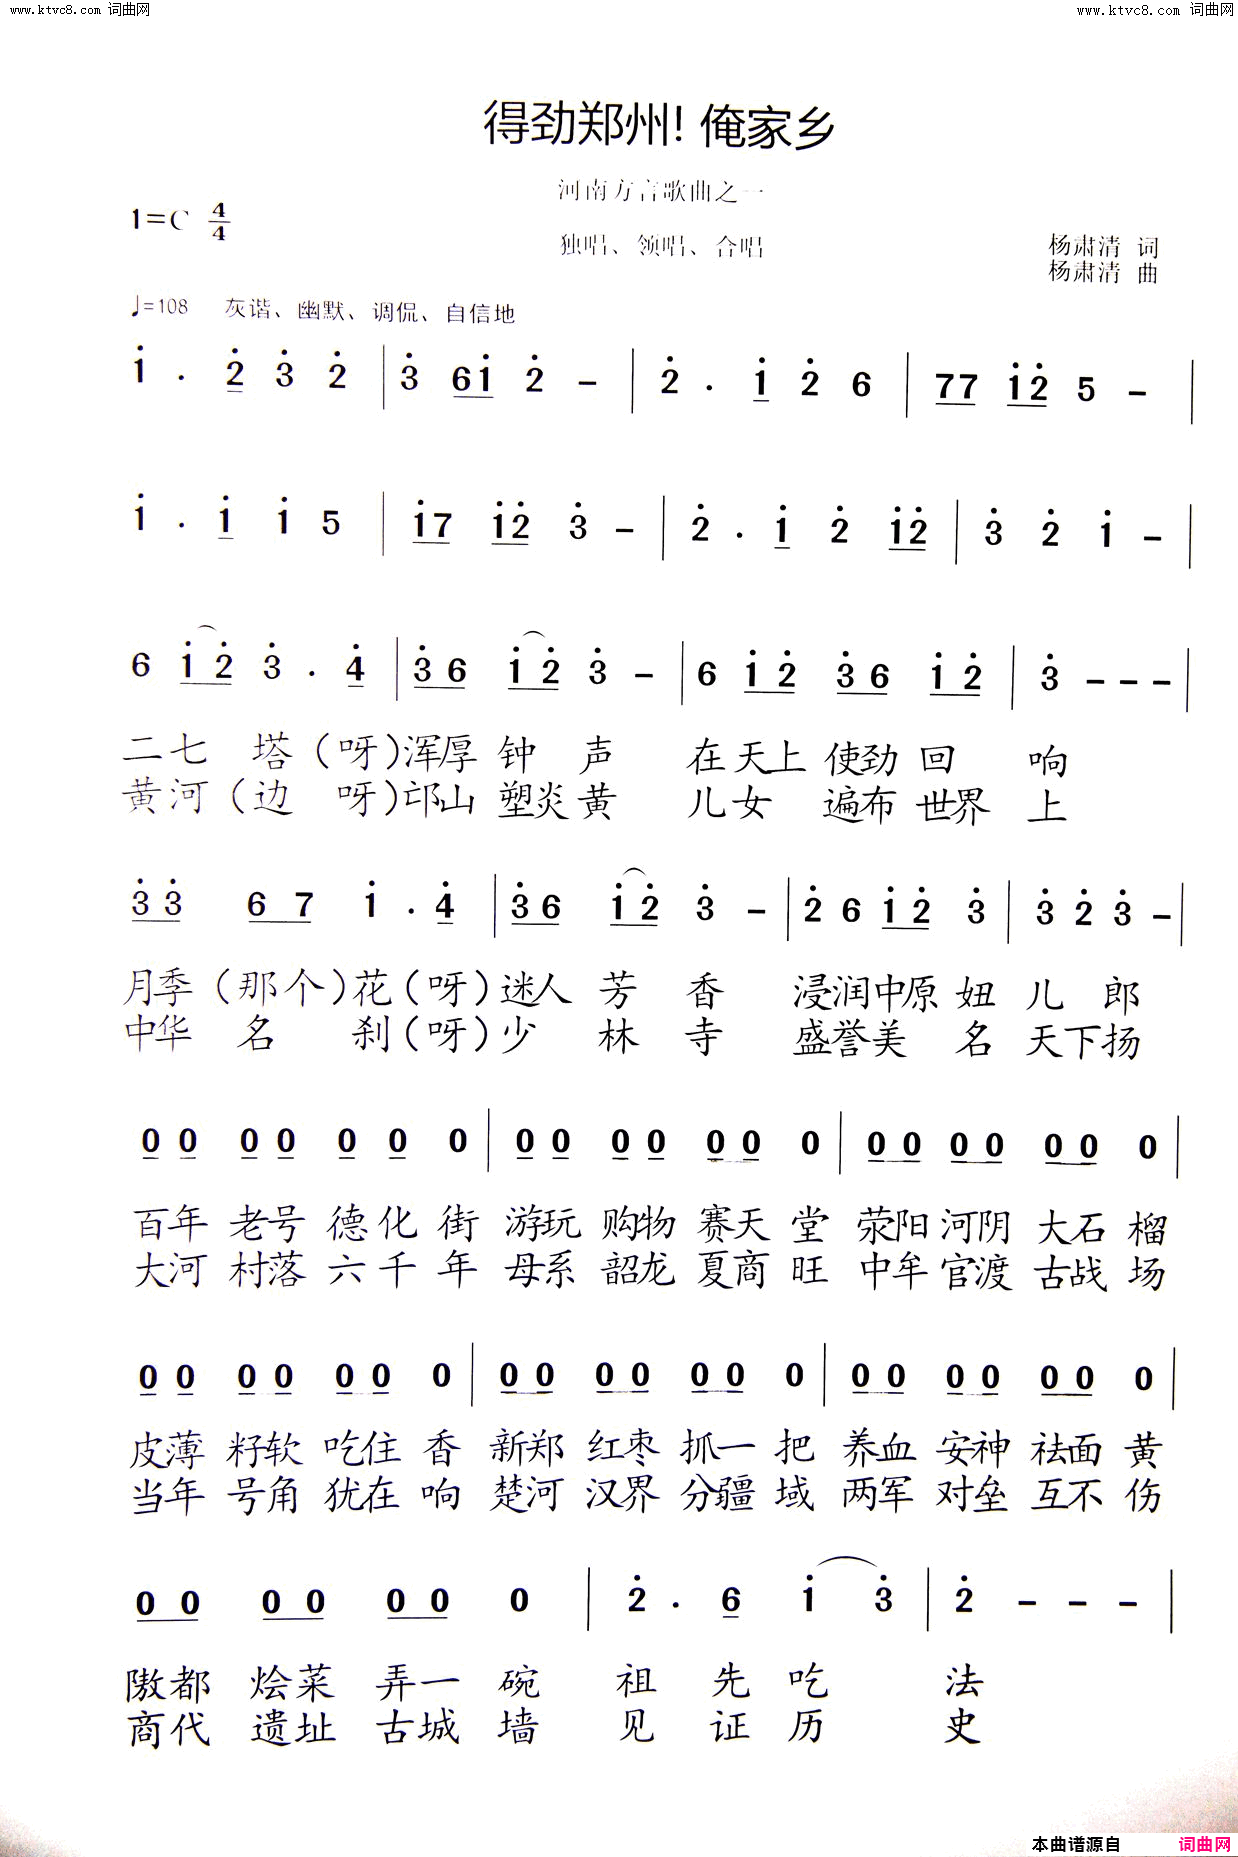 www.ktvc8.com 词曲网 www.ktvc8.com 词曲网
得劲郑州! 俺家乡
河南方言歌曲之一
1=C 4/4
独唱、领唱、合唱
杨肃清 词
杨肃清 曲
♩=108 灰谐、幽默、调侃、自信地
1̇ . 2̇ 3̇ 2̇ | 3̇ 61̇ 2̇ – | 2̇ . 1̇ 2̇ 6 | 77 1̇2̇ 5 – |
1̇ . 1̇ 1̇ 5 | 1̇7 1̇2̇ 3̇ – | 2̇ . 1̇ 2̇ 1̇2̇ | 3̇ 2̇ 1̇ – |
6 1̇2̇ 3̇ . 4̇ | 3̇6 1̇2̇ 3̇ – | 6 1̇2̇ 3̇6 1̇2̇ | 3̇ – – – |
二七 塔（呀）浑厚 钟 声 在天上 使劲 回 响
黄河（边 呀）邙山 塑炎黄 儿女 遍布 世界 上
3̇3̇ 67 1̇ . 4̇ | 3̇6 1̇2̇ 3̇ – | 2̇6 1̇2̇ 3̇ | 3̇ 2̇ 3̇ – |
月季（那个）花（呀）迷人 芳 香 浸润中原 妞 儿 郎
中华 名 刹（呀）少 林 寺 盛誉美 名 天下扬
00 00 00 0 | 00 00 00 0 | 00 00 00 0 |
百年 老号 德化 街 游玩 购物 赛天 堂 荥阳 河阴 大石 榴
大河 村落 六千 年 母系 韶龙 夏商 旺 中牟 官渡 古战 场
00 00 00 0 | 00 00 00 0 | 00 00 00 0 |
皮薄 籽软 吃住 香 新郑 红枣 抓一 把 养血 安神 祛面 黄
当年 号角 犹在 响 楚河 汉界 分疆 域 两军 对垒 互不 伤
00 00 00 0 | 2̇ . 6 1̇ 3̇ | 2̇ – – – |
隞都 烩菜 弄一 碗 祖 先 吃 法
商代 遗址 古城 墙 见 证 历 史
本曲谱源自 词曲网